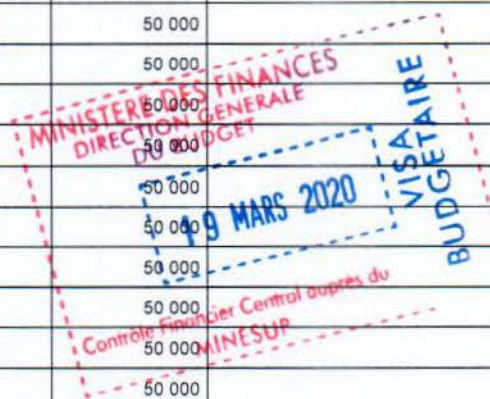 50 000
50 000
50 000
50 000
50 000
50 000
50 000
50 000
50 000
50 000
MINISTERE DES FINANCES
DIRECTION GENERALE
DU BUDGET
19 MARS 2020
VISA
BUDGETAIRE
Contrôle Financier Central auprès du
MINESUP